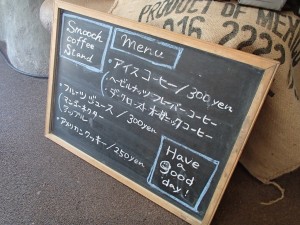 PRODUCT OF MEXI
016 2222
Smooch
coffee
Stand
Menu
・アイスコーヒー/300yen
(ヘーゼルナッツフレーバーコーヒー
・ダークロースト オーガニックコーヒー
・フルーツジュース/300yen
(マンゴーネクター
アップル
・アメリカンクッキー/250yen
Have
a
good
day!